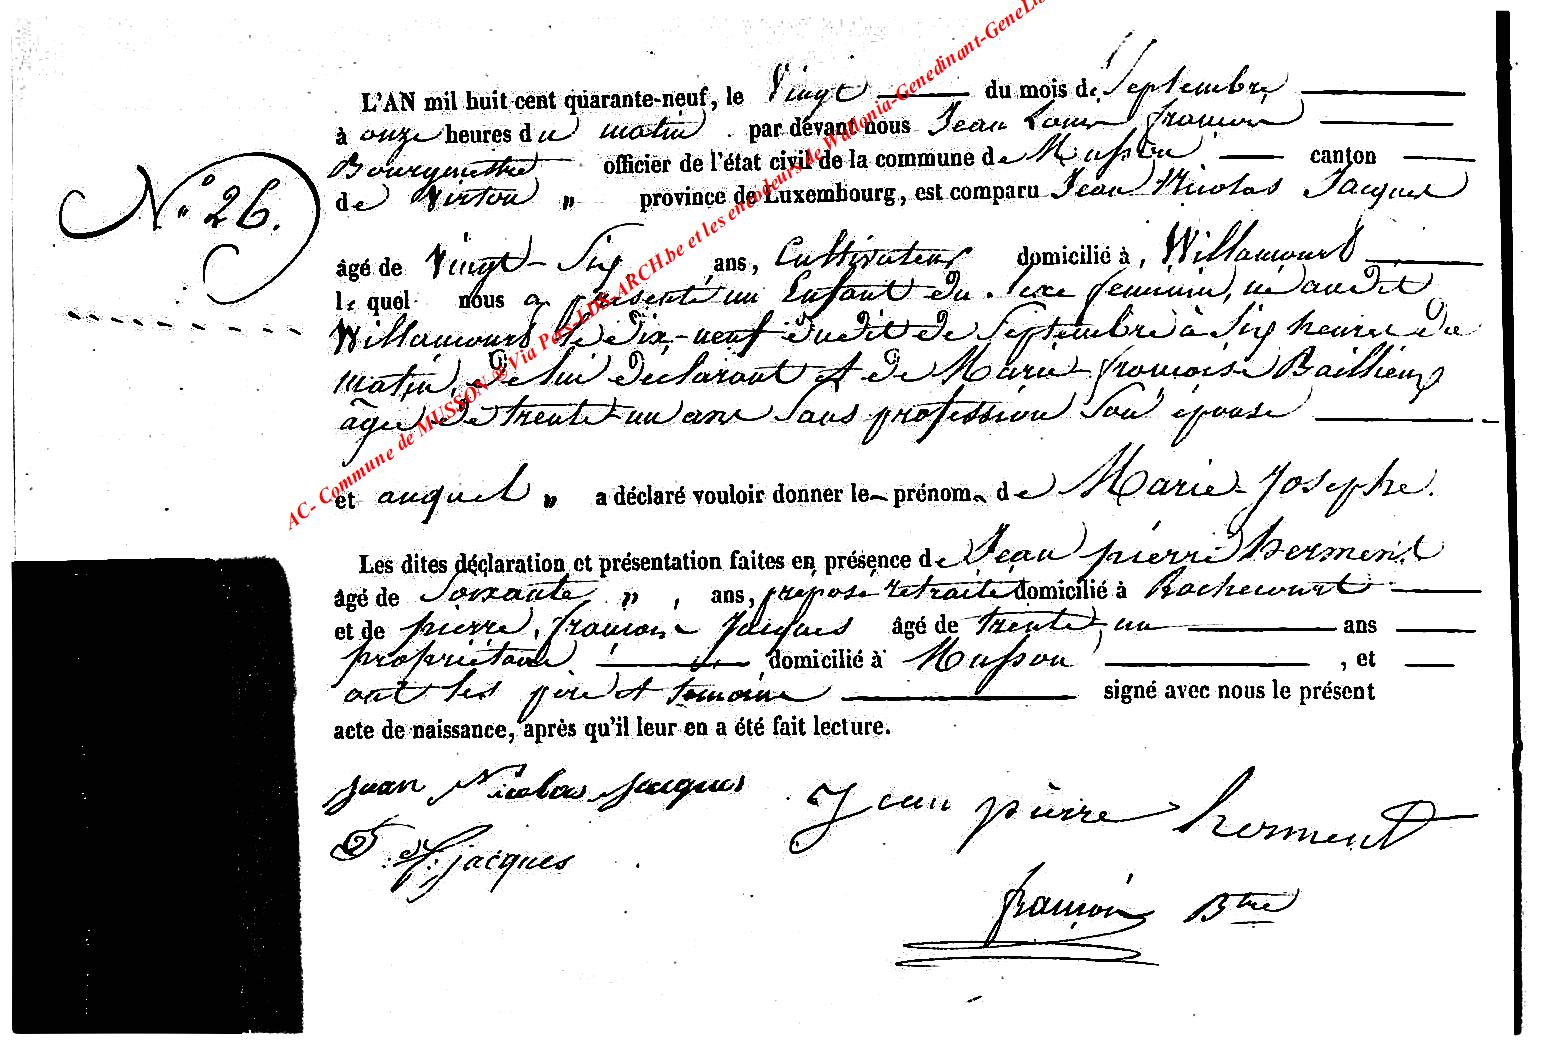 L'AN mil huit cent quarante-neuf, le Vingt du mois de Septembre
à onze heures du matin par devant nous Jean Louis françois
Bourgmestre officier de l'état civil de la commune de Musson canton
N.° 26.
de Virton " province de Luxembourg, est comparu Jean Nicolas Jacques
âgé de Vingt-Six ans, Cultivateur domicilié à, Willancourt
lequel nous a présenté un Enfant du Sexe feminin, né audit
Willancourt le dix-neuf dudit de Septembre à Six heures du
matin, de lui déclarant et de Marie françoise Baillieux
âgée de trente-un ans Sans profession Son épouse
et auquel " a déclaré vouloir donner le prénom de Marie-Josephe.
Les dites déclaration et présentation faites en présence de Jean pierre herment
âgé de Soixante ", ans, préposé retraité domicilié à Rachecourt
et de pierre, françois Jacques âgé de trente-un ans
propriétaire domicilié à Musson, et
ont les père et temoins signé avec nous le présent
acte de naissance, après qu'il leur en a été fait lecture.
jean Nicolas jacques Jean pierre herment
P. f: jacques
françois Btre
AC- Commune de MUSSON @ Via Pers-LDS-ARCH.be et les encodeurs de Wallonia-Genedinant-GeneLux